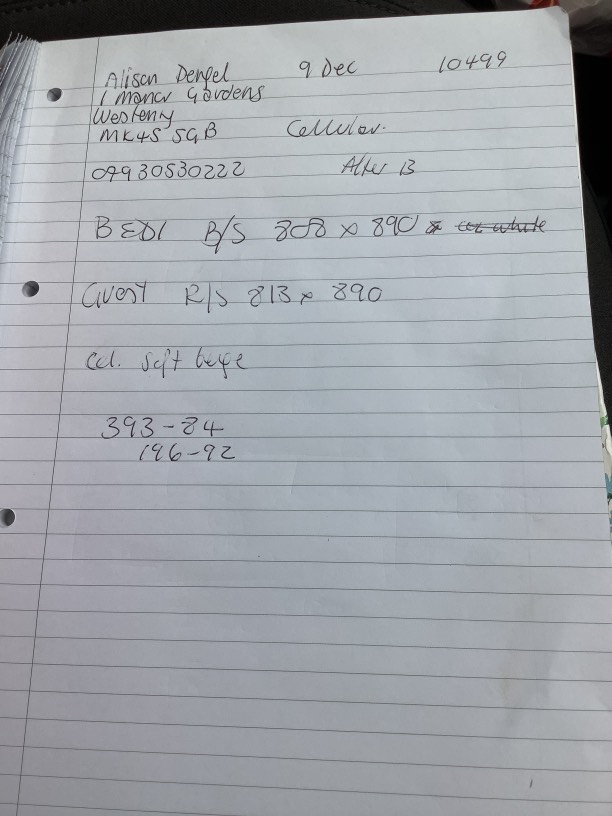 Alison Dengel 9 Dec 10499
1 Manor Gardens
Westening
MK45 5GB Cellular.
07930530222 After 13
BED1 B/S 808 x 890
Guest R/S 813 x 890
Col. Soft beige
393-84
196-92